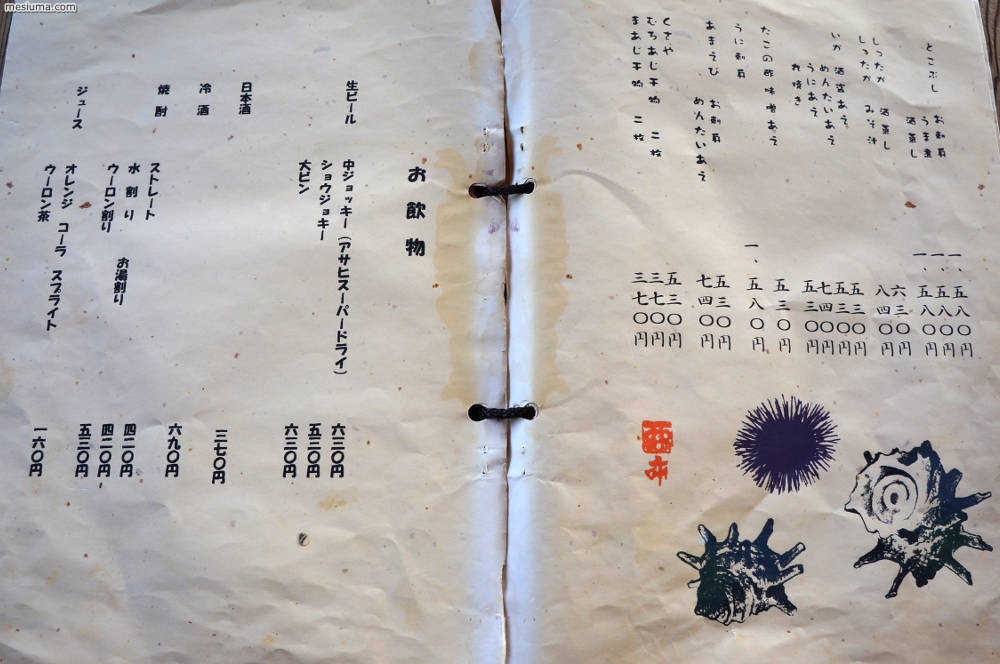 mesiuma.com
とこぶし お刺身 一、五八〇円
うま煮 一、五八〇円
酒蒸し 一、五八〇円
しったか 酒蒸し 六三〇円
しったか みそ汁 八四〇円
いか 酒盗あえ 五三〇円
めんたいあえ 五三〇円
うにあえ 七四〇円
丸焼き 五三〇円
たこの酢味噌あえ 五三〇円
うに刺身 一、五八〇円
あまえび お刺身 七四〇円
めんたいあえ 七四〇円
くさや 五三〇円
むろあじ干物 二枚 三七〇円
まあじ干物 二枚 三七〇円
お飲物
生ビール 中ジョッキー(アサヒスーパードライ) 六三〇円
ショウジョキー 五三〇円
大ビン 六三〇円
日本酒
冷酒 三七〇円
焼酎 ストレート 六九〇円
水割り お湯割り 四二〇円
ウーロン割り 四二〇円
ジュース オレンジ コーラ スプライト 五三〇円
ウーロン茶 一六〇円